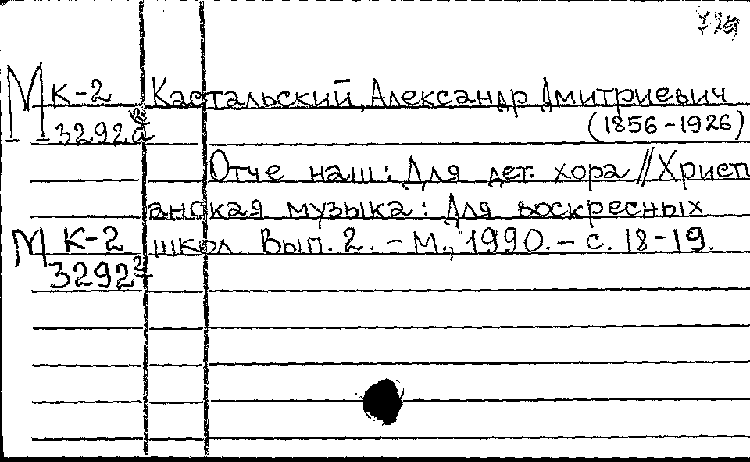 М К-2 Кастальский, Александр Дмитриевич
3292а (1856-1926)
Отче наш: Для дет. хора // Христи
анская музыка: Для воскресных
М К-2 школ Вып. 2. - М., 1990. - с. 18-19.
3292